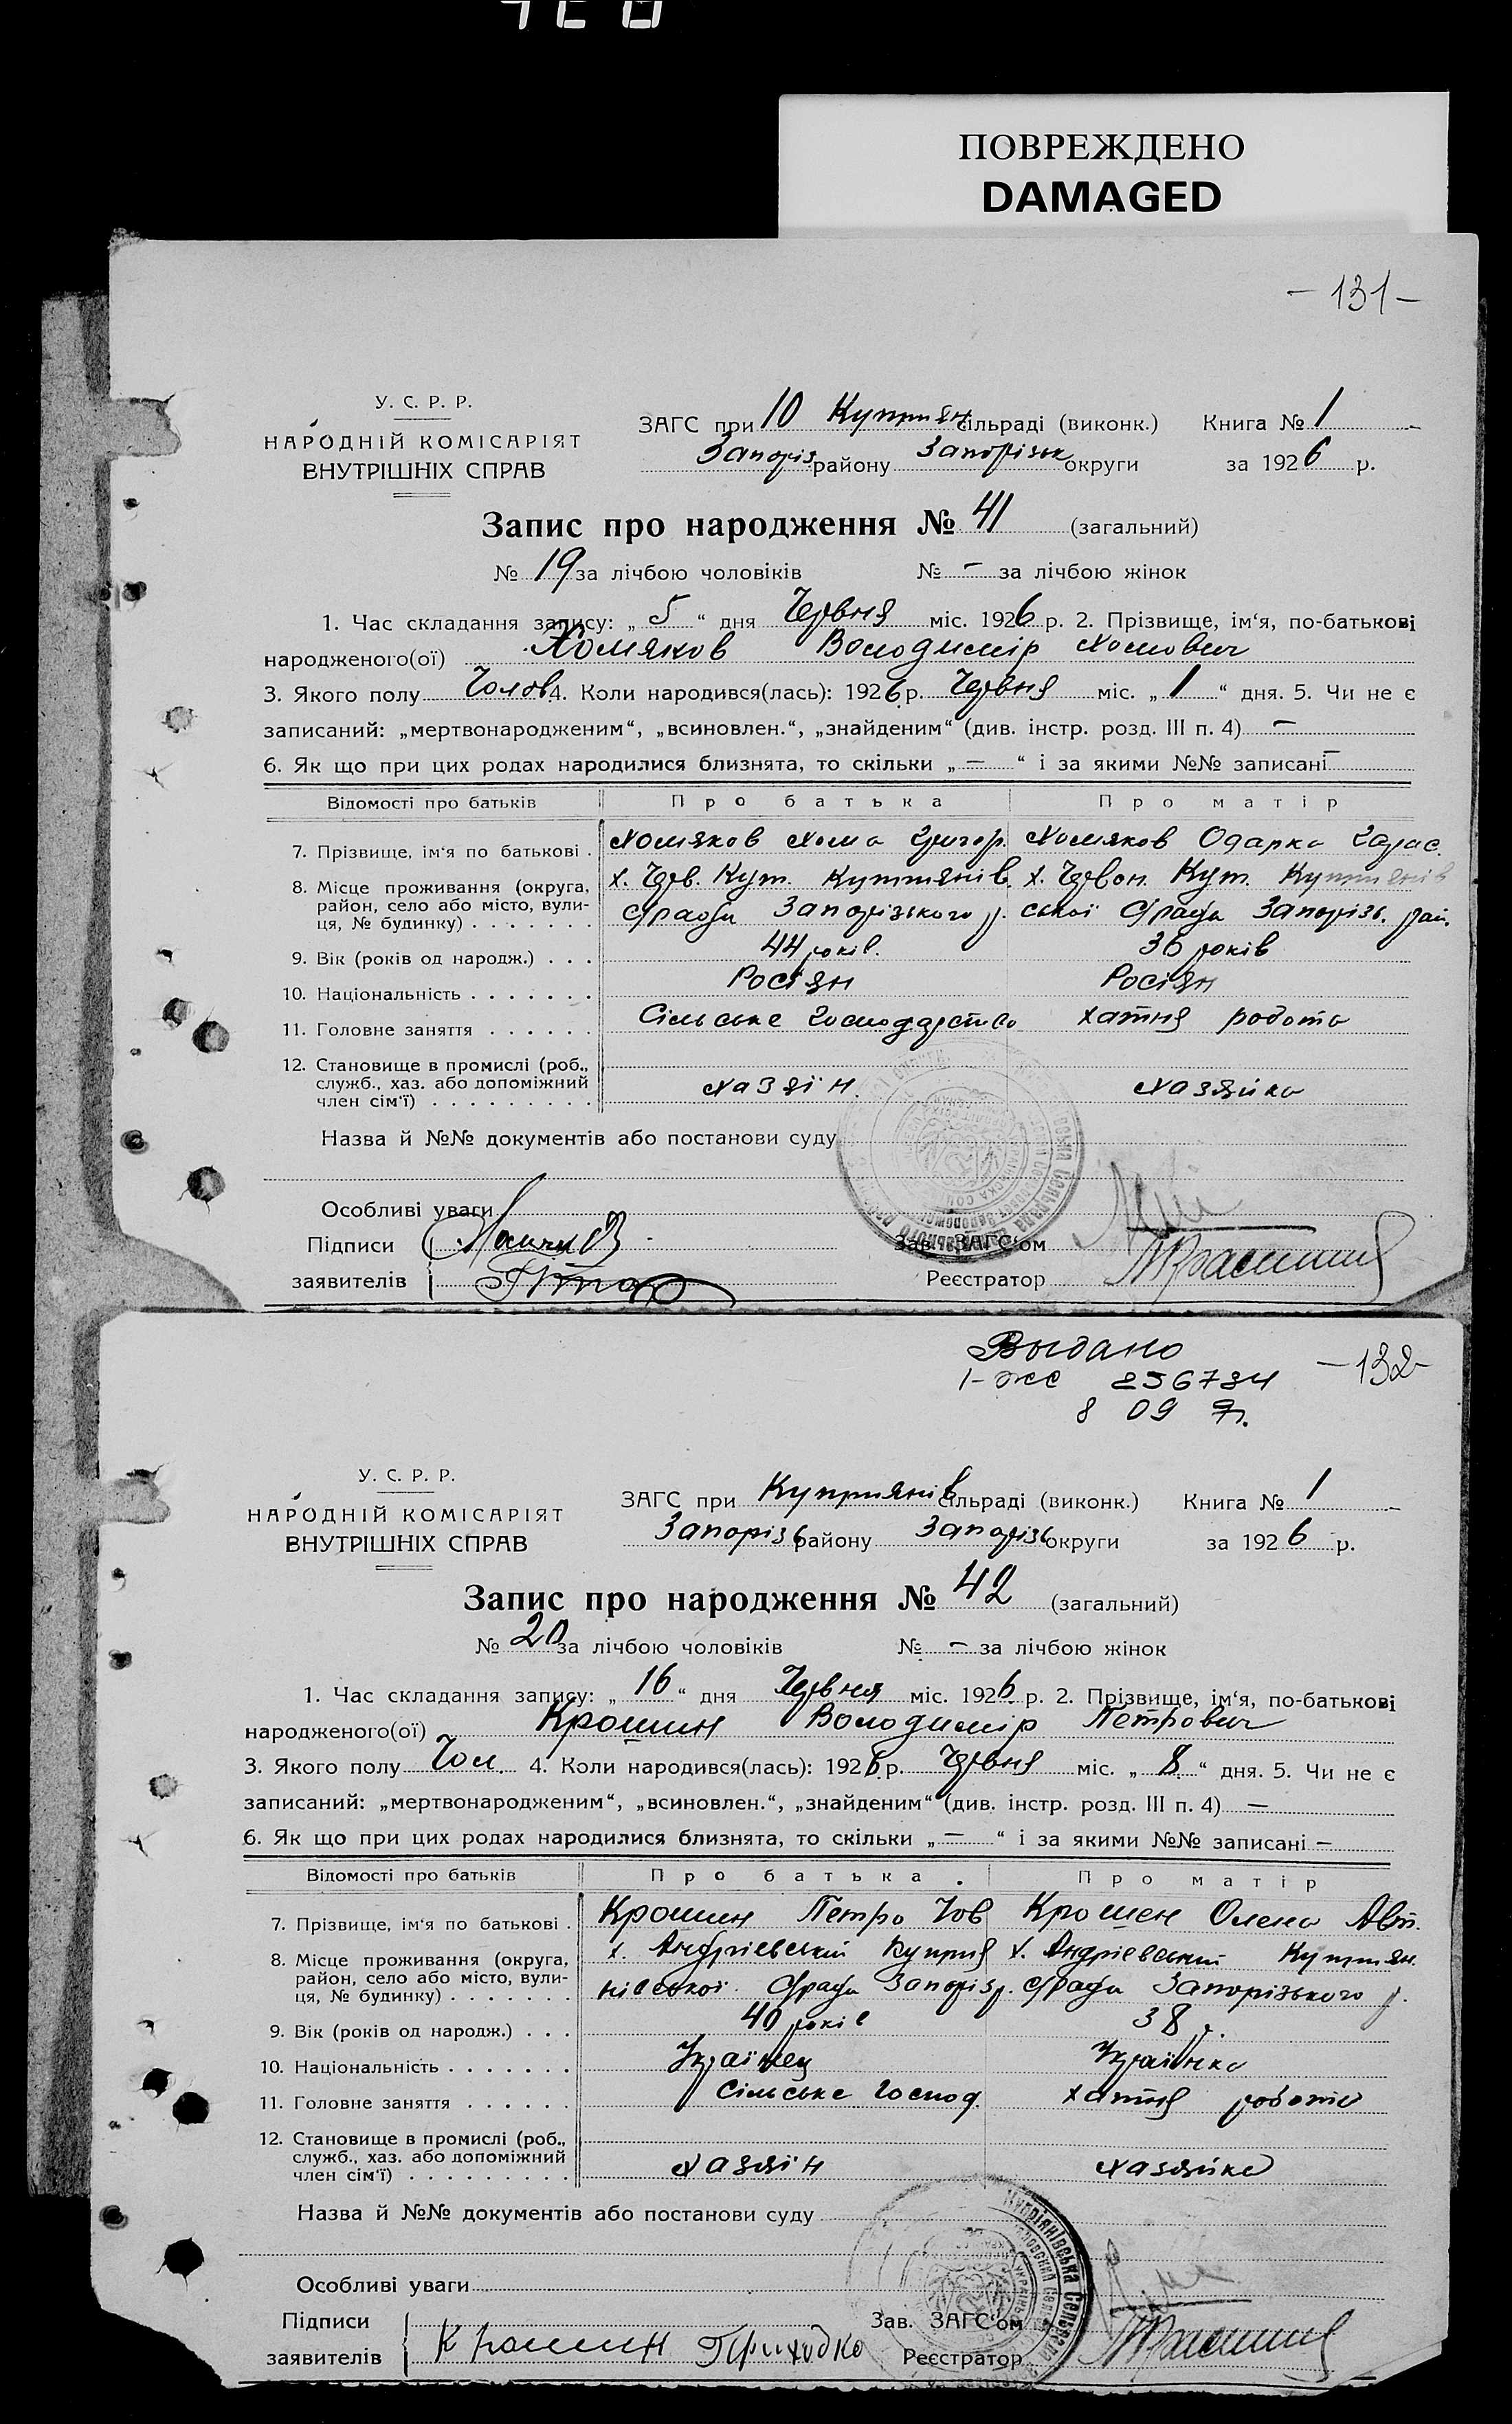 ПОВРЕЖДЕНО
DAMAGED
– 131 –
У. С. Р. Р.
НАРОДНІЙ КОМІСАРІЯТ
ВНУТРІШНІХ СПРАВ
ЗАГС при 10 Куприян сільраді (виконк.) Книга № 1
Запоріз району Запорізьк округи за 1926 р.
Запис про народження № 41 (загальний)
№ 19 за лічбою чоловіків № – за лічбою жінок
1. Час складання запису: „ 5 “ дня Червня міс. 1926 р. 2. Прізвище, ім‘я, по-батькові
народженого(ої) Хомяков Володимір Хомович
3. Якого полу Чолов. 4. Коли народився(лась): 1926 р. Червня міс. „ 1 “ дня. 5. Чи не є
записаний: „мертвонародженим“, „всиновлен.“, „знайденим“ (див. інстр. розд. III п. 4) –
6. Як що при цих родах народилися близнята, то скільки „ — “ і за якими №№ записані –
Відомості про батьків Про батька Про матір
7. Прізвище, ім‘я по батькові . Хомяков Хома Григор. Хомяков Одарка Гарас.
8. Місце проживання (округа, х. Черв. Кут. Куппянів. х. Червон. Кут. Куппянів
район, село або місто, вули- с/ради Запорізького р. ської с/ради Запорізь. рай.
ця, № будинку) . . . . . . .
9. Вік (років од народж.) . . . 44 років. 36 років
10. Національність . . . . . . . Росіян Росіян
11. Головне заняття . . . . . Сільське господарство хатня робота
12. Становище в промислі (роб.,
служб., хаз. або допоміжний хазяїн. хазяйка
член сім‘ї) . . . . . . . . .
Назва й №№ документів або постанови суду
Особливі уваги
Підписи Зав. ЗАГС‘ом
заявителів Реєстратор
Выдано
I-жс 256784
8 09
–132–
У. С. Р. Р.
НАРОДНІЙ КОМІСАРІЯТ
ВНУТРІШНІХ СПРАВ
ЗАГС при Куприянів сільраді (виконк.) Книга № 1
Запорізь району Запорізь округи за 1926 р.
Запис про народження № 42 (загальний)
№ 20 за лічбою чоловіків № – за лічбою жінок
1. Час складання запису: „ 16 “ дня Червня міс. 1926 р. 2. Прізвище, ім‘я, по-батькові
народженого(ої) Крошин Володимір Петрович
3. Якого полу Чол. 4. Коли народився(лась): 1926 р. Червня міс. „ 8 “ дня. 5. Чи не є
записаний: „мертвонародженим“, „всиновлен.“, „знайденим“ (див. інстр. розд. III п. 4) —
6. Як що при цих родах народилися близнята, то скільки „ — “ і за якими №№ записані –
Відомості про батьків Про батька . Про матір
7. Прізвище, ім‘я по батькові . Крошин Петро Іов Крошен Олена Авт.
8. Місце проживання (округа, х. Андрієвський Куприя х. Андрієвський Куппян.
район, село або місто, вули- нівської с/ради Запоріз р. с/ради Запорізького р.
ця, № будинку) . . . . . . .
9. Вік (років од народж.) . . . 40 років 38 р.
10. Національність . . . . . . . Українец Українка
11. Головне заняття . . . . . . Сільське господ. хатня робота
12. Становище в промислі (роб.,
служб., хаз. або допоміжний хазяїн хазяйка
член сім‘ї) . . . . . . . . .
Назва й №№ документів або постанови суду
Особливі уваги
Підписи Зав. ЗАГС‘ом
заявителів Крошин Приходко Реєстратор